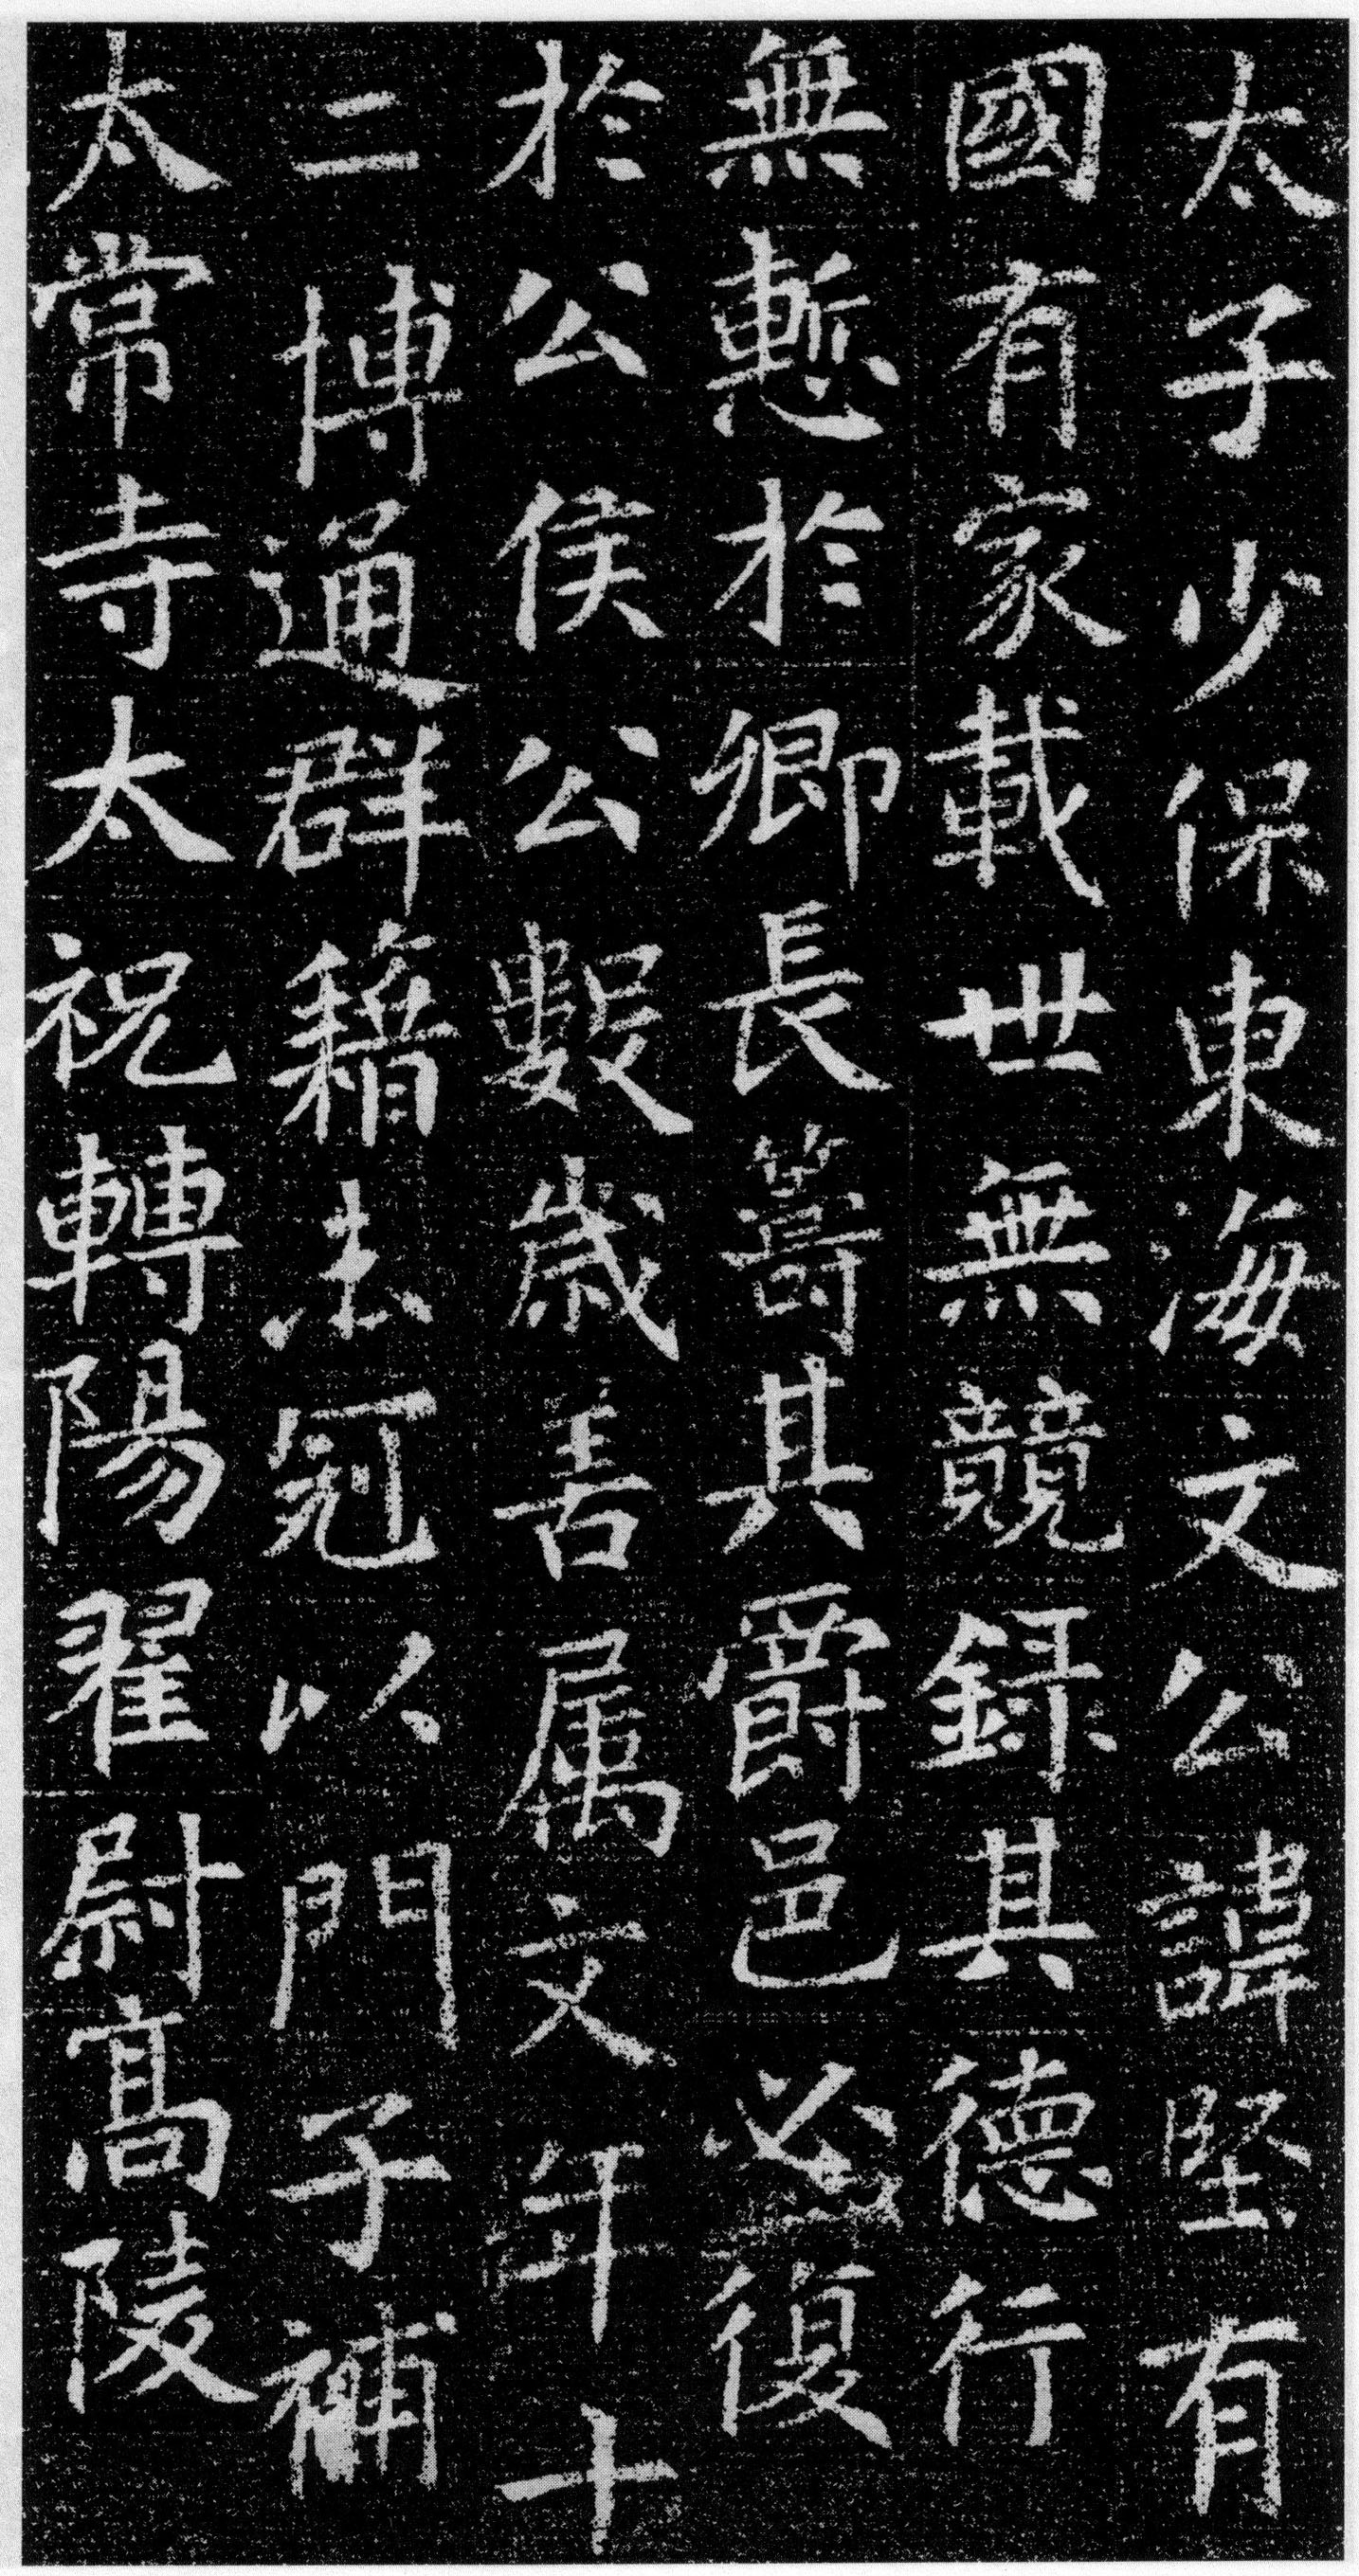 太子少保東海文公諱堅有
國有家載世無競録其德行
無慙於卿長籌其爵邑必復
於公侯公數歲善属文年十
二博通群籍志冠以門子補
太常寺太祝轉陽翟尉高陵